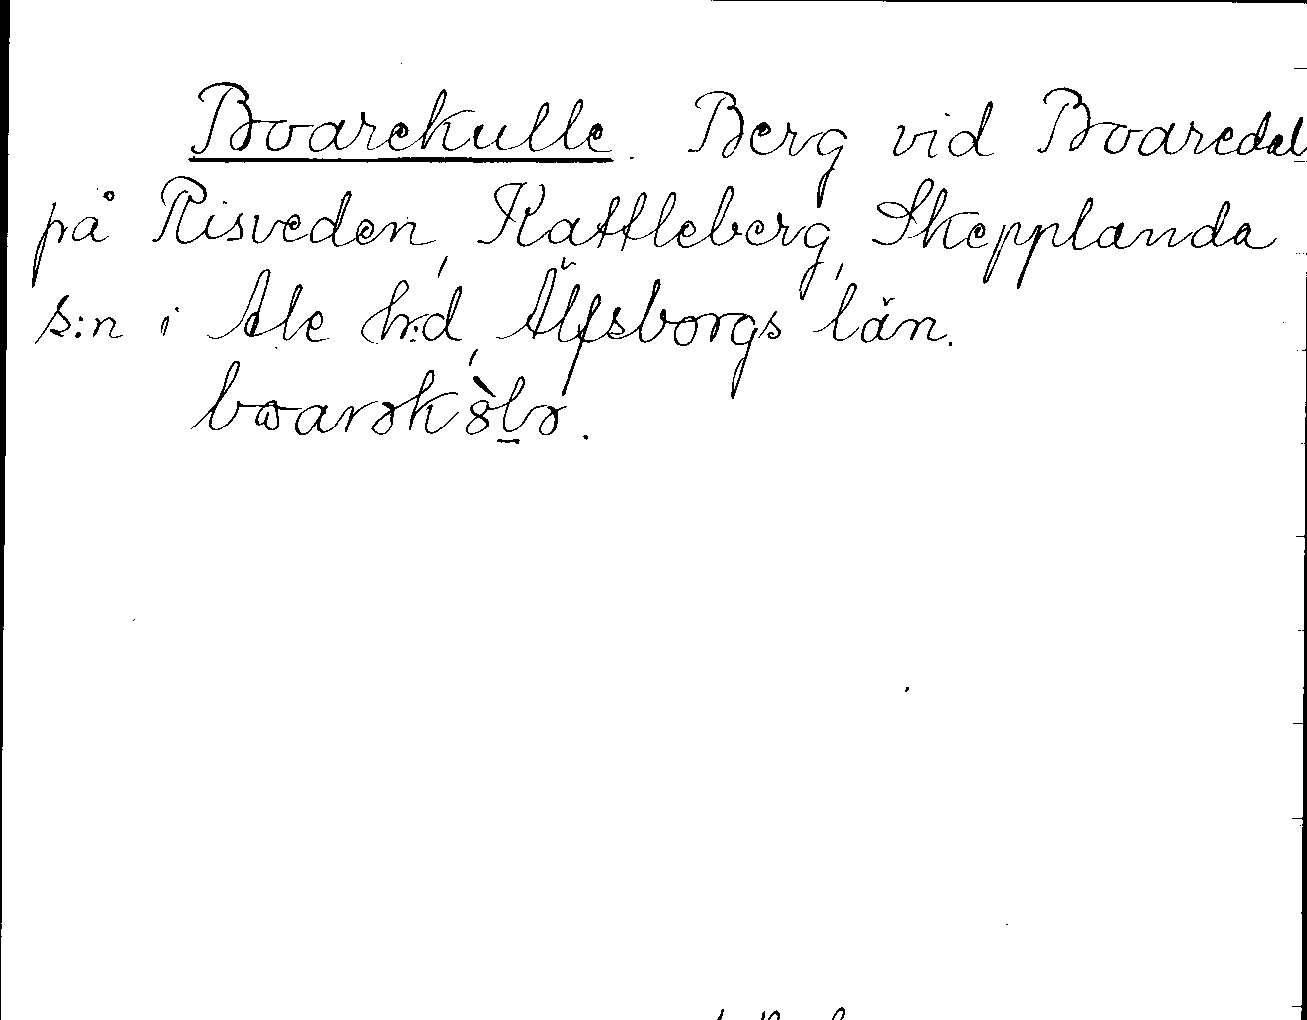 Boarekulle. Berg vid Boaredal
på Risveden, Kattleberg, Skepplanda
s:n i Ale h:d, Älfsborgs län.